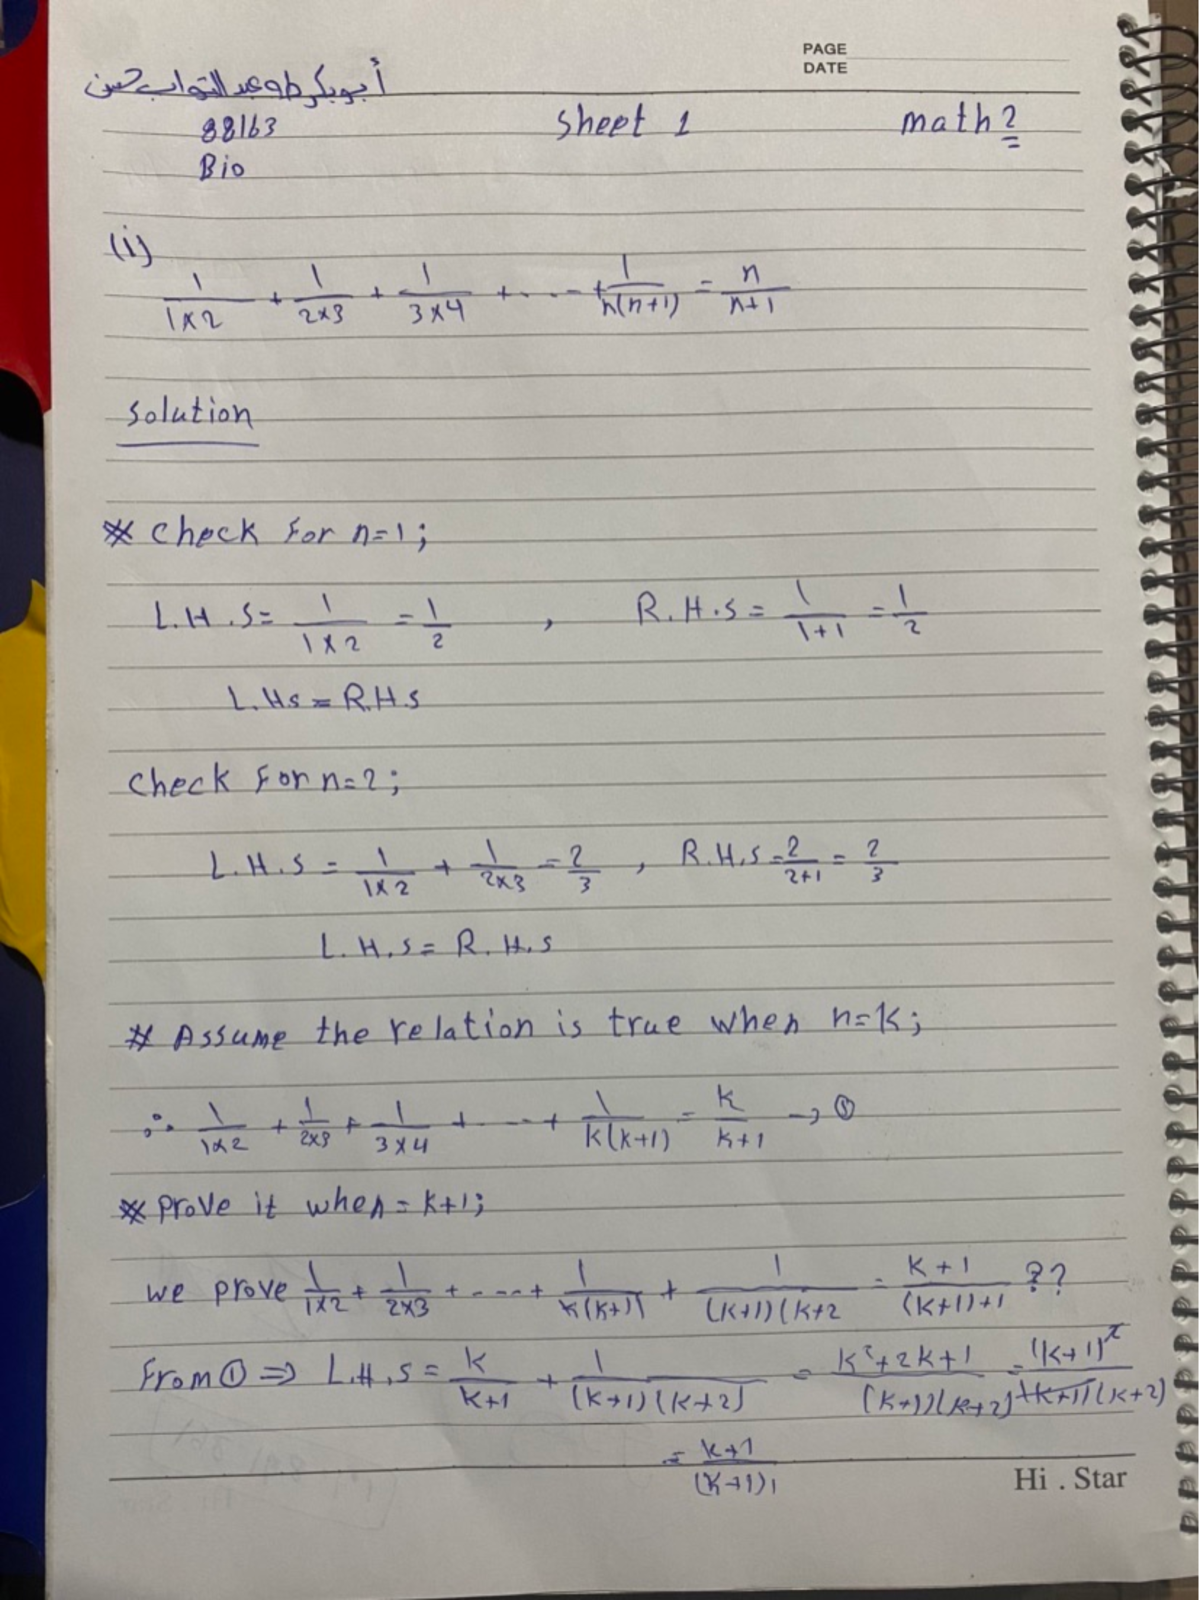 PAGE
DATE
أبوبكر طه عبد التواب حسن
88163 sheet 1 math 2
Bio
(i)
1/(1×2) + 1/(2×3) + 1/(3×4) + ... + 1/(n(n+1)) = n/(n+1)
Solution
* check For n=1;
L.H.S= 1/(1×2) = 1/2 , R.H.S= 1/(1+1) = 1/2
L.Hs = R.H.s
check For n=2;
L.H.S = 1/(1×2) + 1/(2×3) = 2/3 , R.H.S = 2/(2+1) = 2/3
L.H.S = R.H.S
* Assume the relation is true when n=k;
∴ 1/(1×2) + 1/(2×3) + 1/(3×4) + ... + 1/(k(k+1)) = k/(k+1) → ①
* prove it when = k+1;
we prove 1/(1×2) + 1/(2×3) + ... + 1/(k(k+1)) + 1/((k+1)(k+2 = (k+1)/((k+1)+1) ??
From ① ⇒ L.H.S = k/(k+1) + 1/((k+1)(k+2)) = (k²+2k+1)/((k+1)(k+2)) = (k+1)²/((k+1)(k+2))
= (k+1)/((k+1)1
Hi . Star